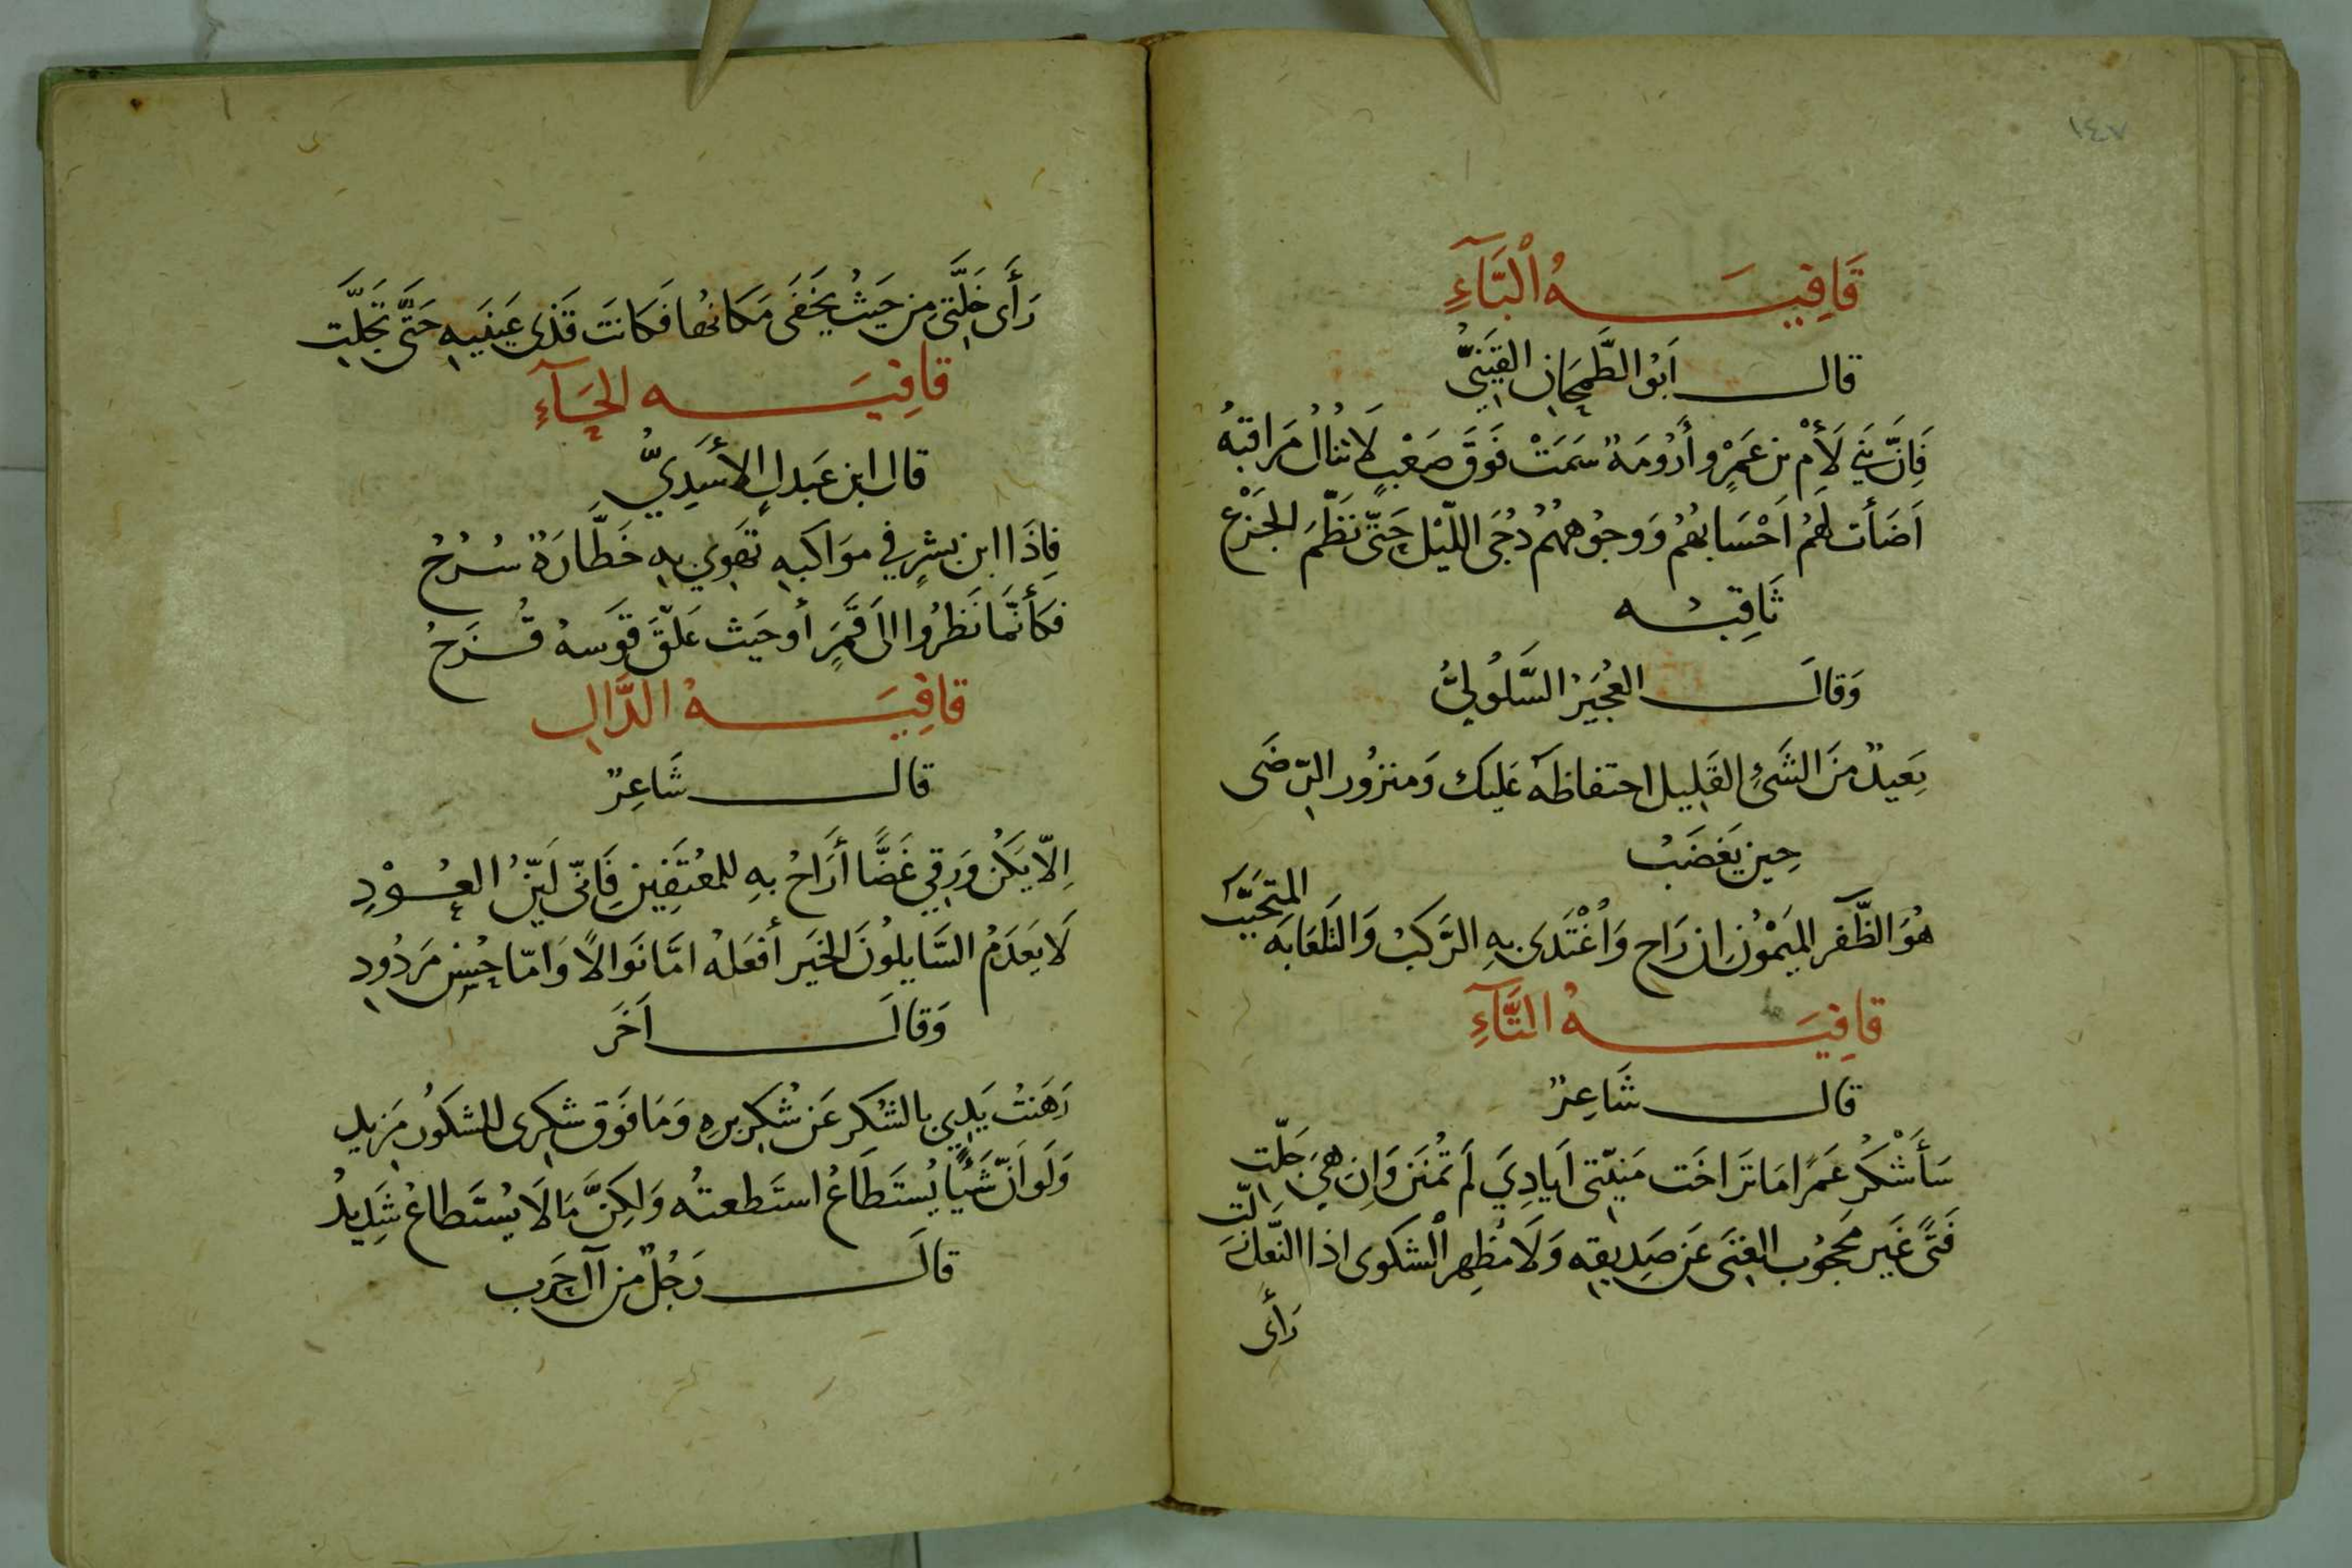 ١٤٧
قَافِيَةُ الْبَآءِ
قال أَبُو الطَّمَحَانِ القَيْنِيُّ
فَإِنَّ بَنِي لَأْمِ بن عَمْرٍو أَرُومَةٌ سَمَتْ فَوَقَ صَعْبٍ لَا تُنَالُ مَرَاقبُهُ
أَضَأَت لَهُمْ اَحْسَابُهُم وَوجُوههُمْ دُجَى اللّيْلِ حَتَّى نَظَّمَ الجَزْعَ
ثَاقِبُه
وَقالَ العُجَيْرُ السَّلُولِيُّ
بَعِيدٌ مِنَ الشَّئِ القَلِيلِ احتفاظهُ عَلَيك وَمنزُور الرِّضَى
حِينَ يَغضَبُ
هُوَ الظَّفر المَيَمُونُ اِن رَاح وَاُغْتَدَى بِهِ الرَّكبُ وَالتَلعَابَه
المتَحَيَّب
قافِيَةُ التَّآءِ
قال شَاعِرٌ
سَأَشْكُر عَمرًا مَا تَرَاخَت مَنيّتِي اَيادِيَ لَم تُمنَن وَاِن هِيَ جَلّت
فَتًى غَير مَحجُوب الغِنَى عَن صَدِيقِه وَلَا مُظهِر الْشكوى اذا النَّعل زَ
لّت
رَأى
رَأَى خَلَّتِي مِن حَيثُ يَخفَى مَكانُها فَكانَت قَذَى عَينَيهِ حَتَّى تَجَلَّتِ
قافِيَه الحَآءِ
قال ابن عَبدلٍ الأَسَدِيُّ
فَاِذَا ابن بشرٍ في مَوَاكبه تَهوِي بِهِ خَطَّارَةٌ سُرُحُ
فكَأَنَّمَا نَظَرُوا الى قَمَرٍ أو حَيث عَلّقَ قَوسهُ قُزَحُ
قافِيَةُ الدَّالِ
قال شَاعِرٌ
اِلّا يَكُن وَرَقِي غَضًّا أَرَاحُ بهِ للمُعتَفِينَ فَاِنّي لَيّنُ العُوْدِ
لَا يَعدَمُ السَّايلُونَ الخَير أَفعَلهُ امَّا نَوَالًا وَامّا حُسنَ مَردُودِ
وَقالَ اَخَر
رَهَنتُ يَدِي بالشُكر عَن شُكر برهِ وَمَا فَوق شكرى للشكوُر مَزيد
وَلَو اَنّ شَيْئًا يُستَطَاعُ استَطعتُه وَلكِنَّ مَا لَا يُستَطاعُ شَدِيدُ
قالَ رَجُلٌ مِن آل حَرب